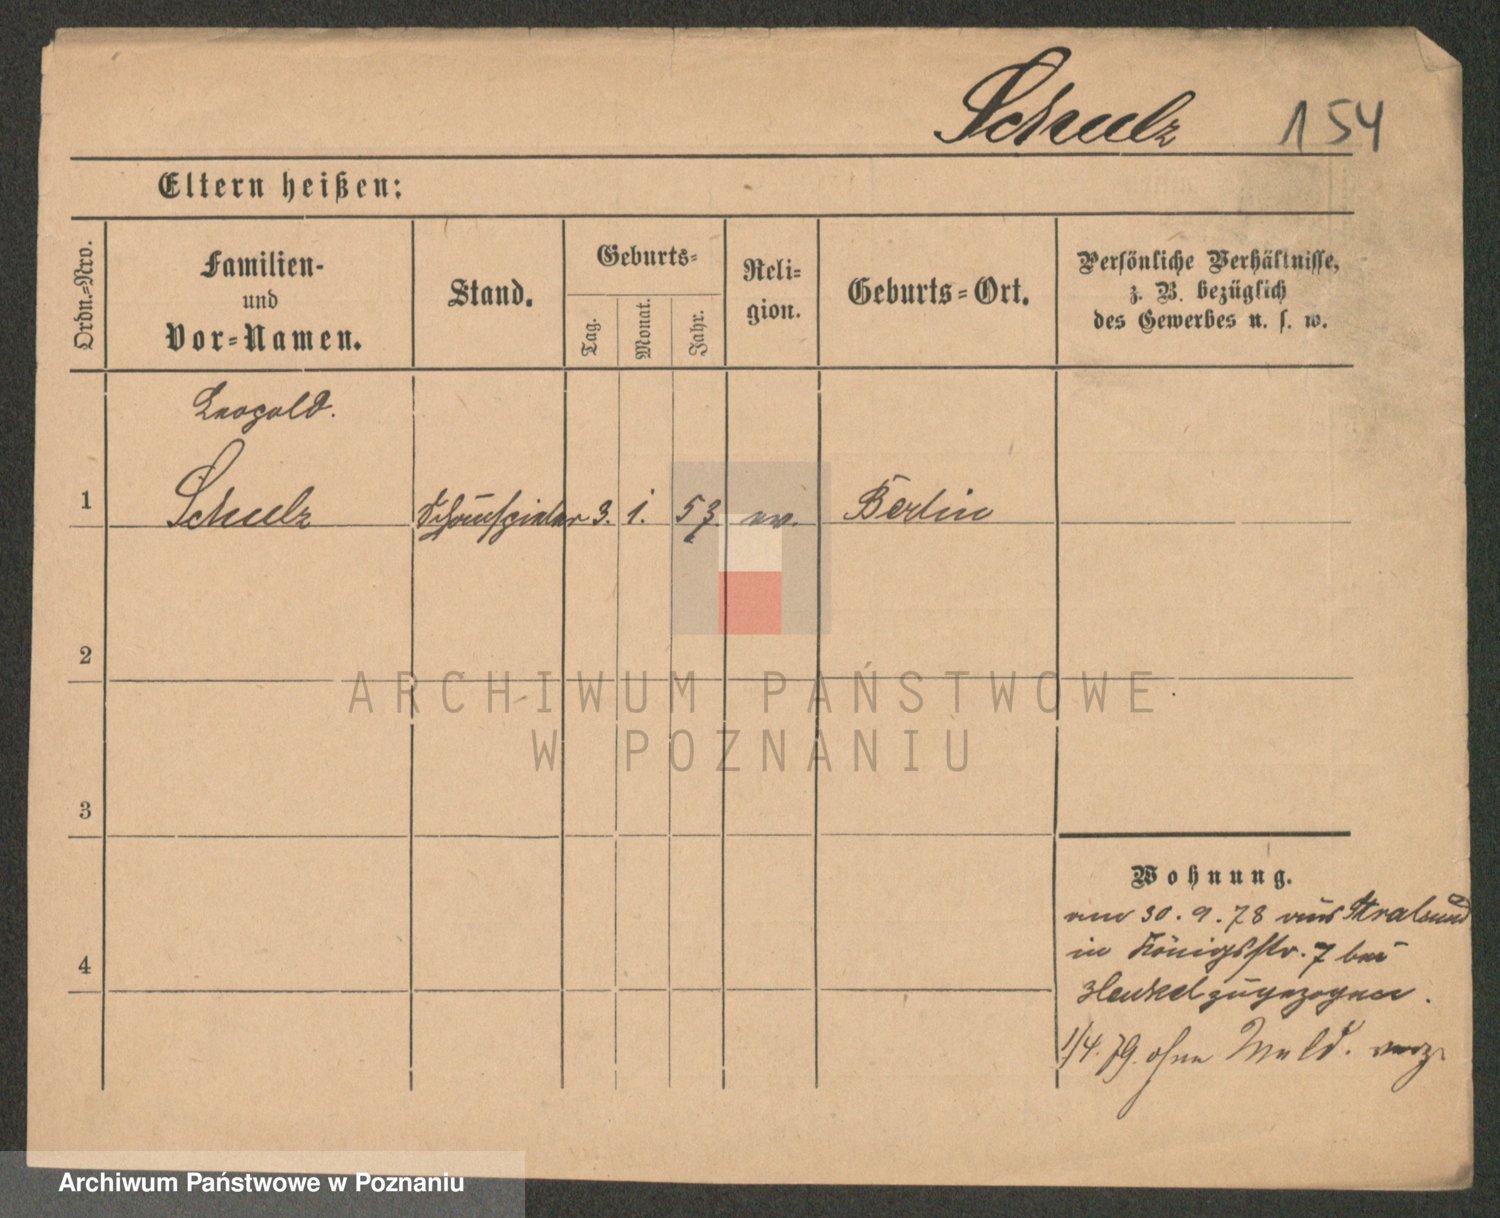 Schulz 154
Eltern heißen:
Ordn.-Nro.
Familien-
und
Vor-Namen.
Stand.
Geburts-
Tag.
Monat.
Jahr.
Reli-
gion.
Geburts-Ort.
Persönliche Verhältnisse,
z. B. bezüglich
des Gewerbes u. s. w.
Leopold.
1 Schulz Schauspieler 3. 1. 53. ev. Berlin
2
3
4
Wohnung.
am 30.9.78 aus Stralsund
in Königsstr. 7 bei
Henkel zugezogen.
1/4. 79. ohne Meld. verz.
ARCHIWUM PAŃSTWOWE
W POZNANIU
Archiwum Państwowe w Poznaniu